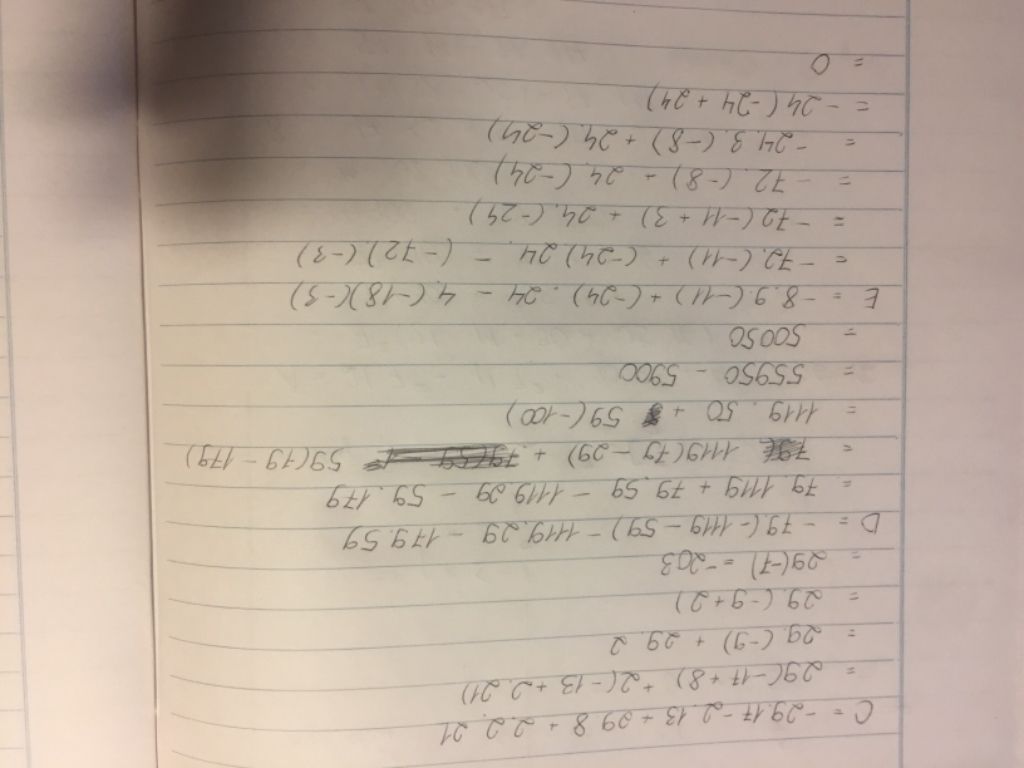 C = - 29.17 - 2.13 + 29.8 + 2.2.21
= 29(-17+8) + 2(-13 + 2.21)
= 29(-9) + 29.2
= 29(-9+2)
= 29(-7) = -203
D = - 79.(-1119 - 59) - 1119.29 - 179.59
= 79.1119 + 79.59 - 1119.29 - 59.179
= 1119(79 - 29) + 59(79 - 179)
= 1119.50 + 59(-100)
= 55950 - 5900
= 50050
E = - 8.9.(-11) + (-24).24 - 4.(-18)(-3)
= - 72.(-11) + (-24).24 - (-72)(-3)
= - 72(-11 + 3) + 24.(-24)
= - 72.(-8) + 24(-24)
= - 24.3.(-8) + 24.(-24)
= - 24(-24 + 24)
= 0